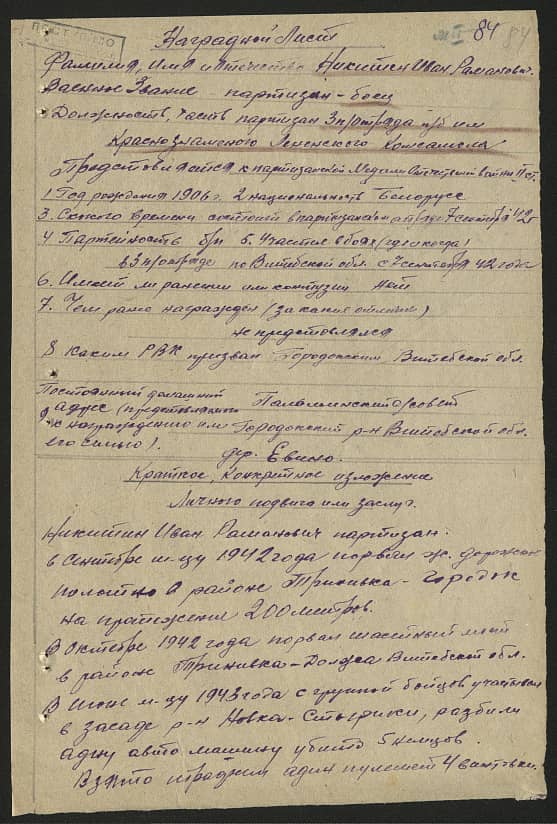 84
Наградной Лист
Фамилия, имя и отчество Никитин Иван Раманович.
Военное Звание - партизан - боец
Должность, часть партизан 3 п/отряда п/б им
Краснознаменого Ленинского Комсамола
Предстовляется к партизанской Медали Отечествен войны II ст.
1 Год рождения 1906 г. 2 национальность Белорусс
3. С какого времени состоит в партизанском отряде 7 сентября 42 г
4 Партейность б/п 5. Участие в боях (где и когда)
в 3 п/отряде по Витебской обл. с 7 сентября 42 года
6. Имеит ли ранения или контузии нет
7. Чем рание награжден (за какие отличия)
не предстовлялся
8 Каким РВК призван Городокским Витебской обл.
Постоянный домашний
9 адрес (предстовляемого Паламинский с/совет
к награждению или Городокский р-н Витебской обл.
его семьи). дер. Евино.
Краткое, конкретное изложение
Личного подвига или заслуг.
Никитин Иван Раманович партизан.
в сентябре м-цу 1942 года порвал ж. дорожное
полотно в районе - Городок
на протяжении 200 метров.
В Октебре 1942 года порвал шассейный мост
в район Витебской обл.
В июне м-цу 1943 года с групной бойцов участвовал
в засаде р-н Новка - разбили
адну авто машину убито 5 немцов.
Взято трофеем адин пулемет 4 винтовки.